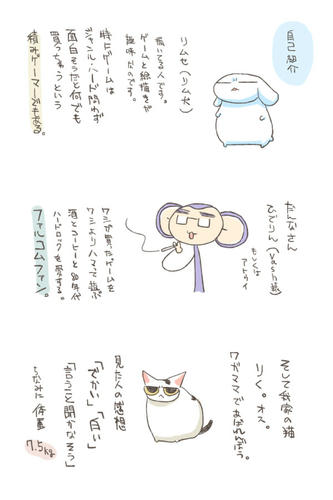 自己紹介
リムセ（リム犬）
描いてる人です。
ゲームと絵描きが
趣味なのです。
特にゲームは
ジャンル・ハード問わず
面白そうだと何でも
買っちゃうという
積みゲーマーでもある。
だんなさん
ひでりん（Vash猿）
もしくは
アトゥイ
ワシが買ったゲームを
ワシよりハマって遊ぶ
酒とコーヒーと80年代
ハードロックを愛する。
ファルコムファン。
そして我家の猫
りく。オス。
ワガママであばれんぼう。
見た人の感想
「でかい」「白い」
「言うこと聞かなそう」
ちなみに体重
7.5kg